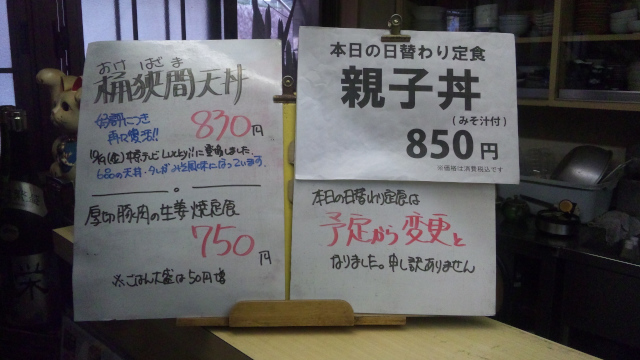 おけ はざま
桶狭間天丼
好評につき
再び復活!!
830円
6品の天丼・タレがみそ風味になっています。
厚切豚肉の生姜焼定食
750円
※ごはん大盛は50円増
本日の日替わり定食
親子丼
(みそ汁付)
850円
※価格は消費税込です
本日の日替わり定食は
予定から変更と
なりました。申し訳ありません